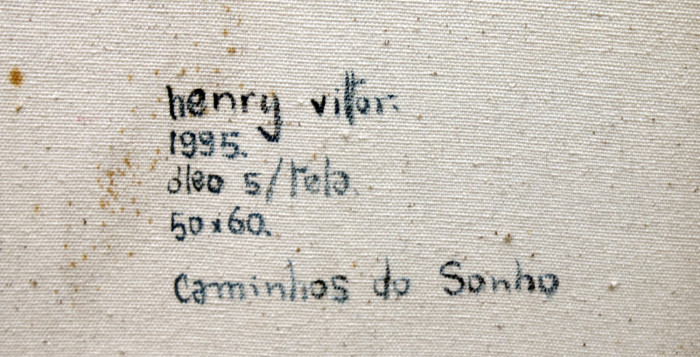 henry vitor.
1995.
óleo s/tela.
50x60.
Caminhos do Sonho